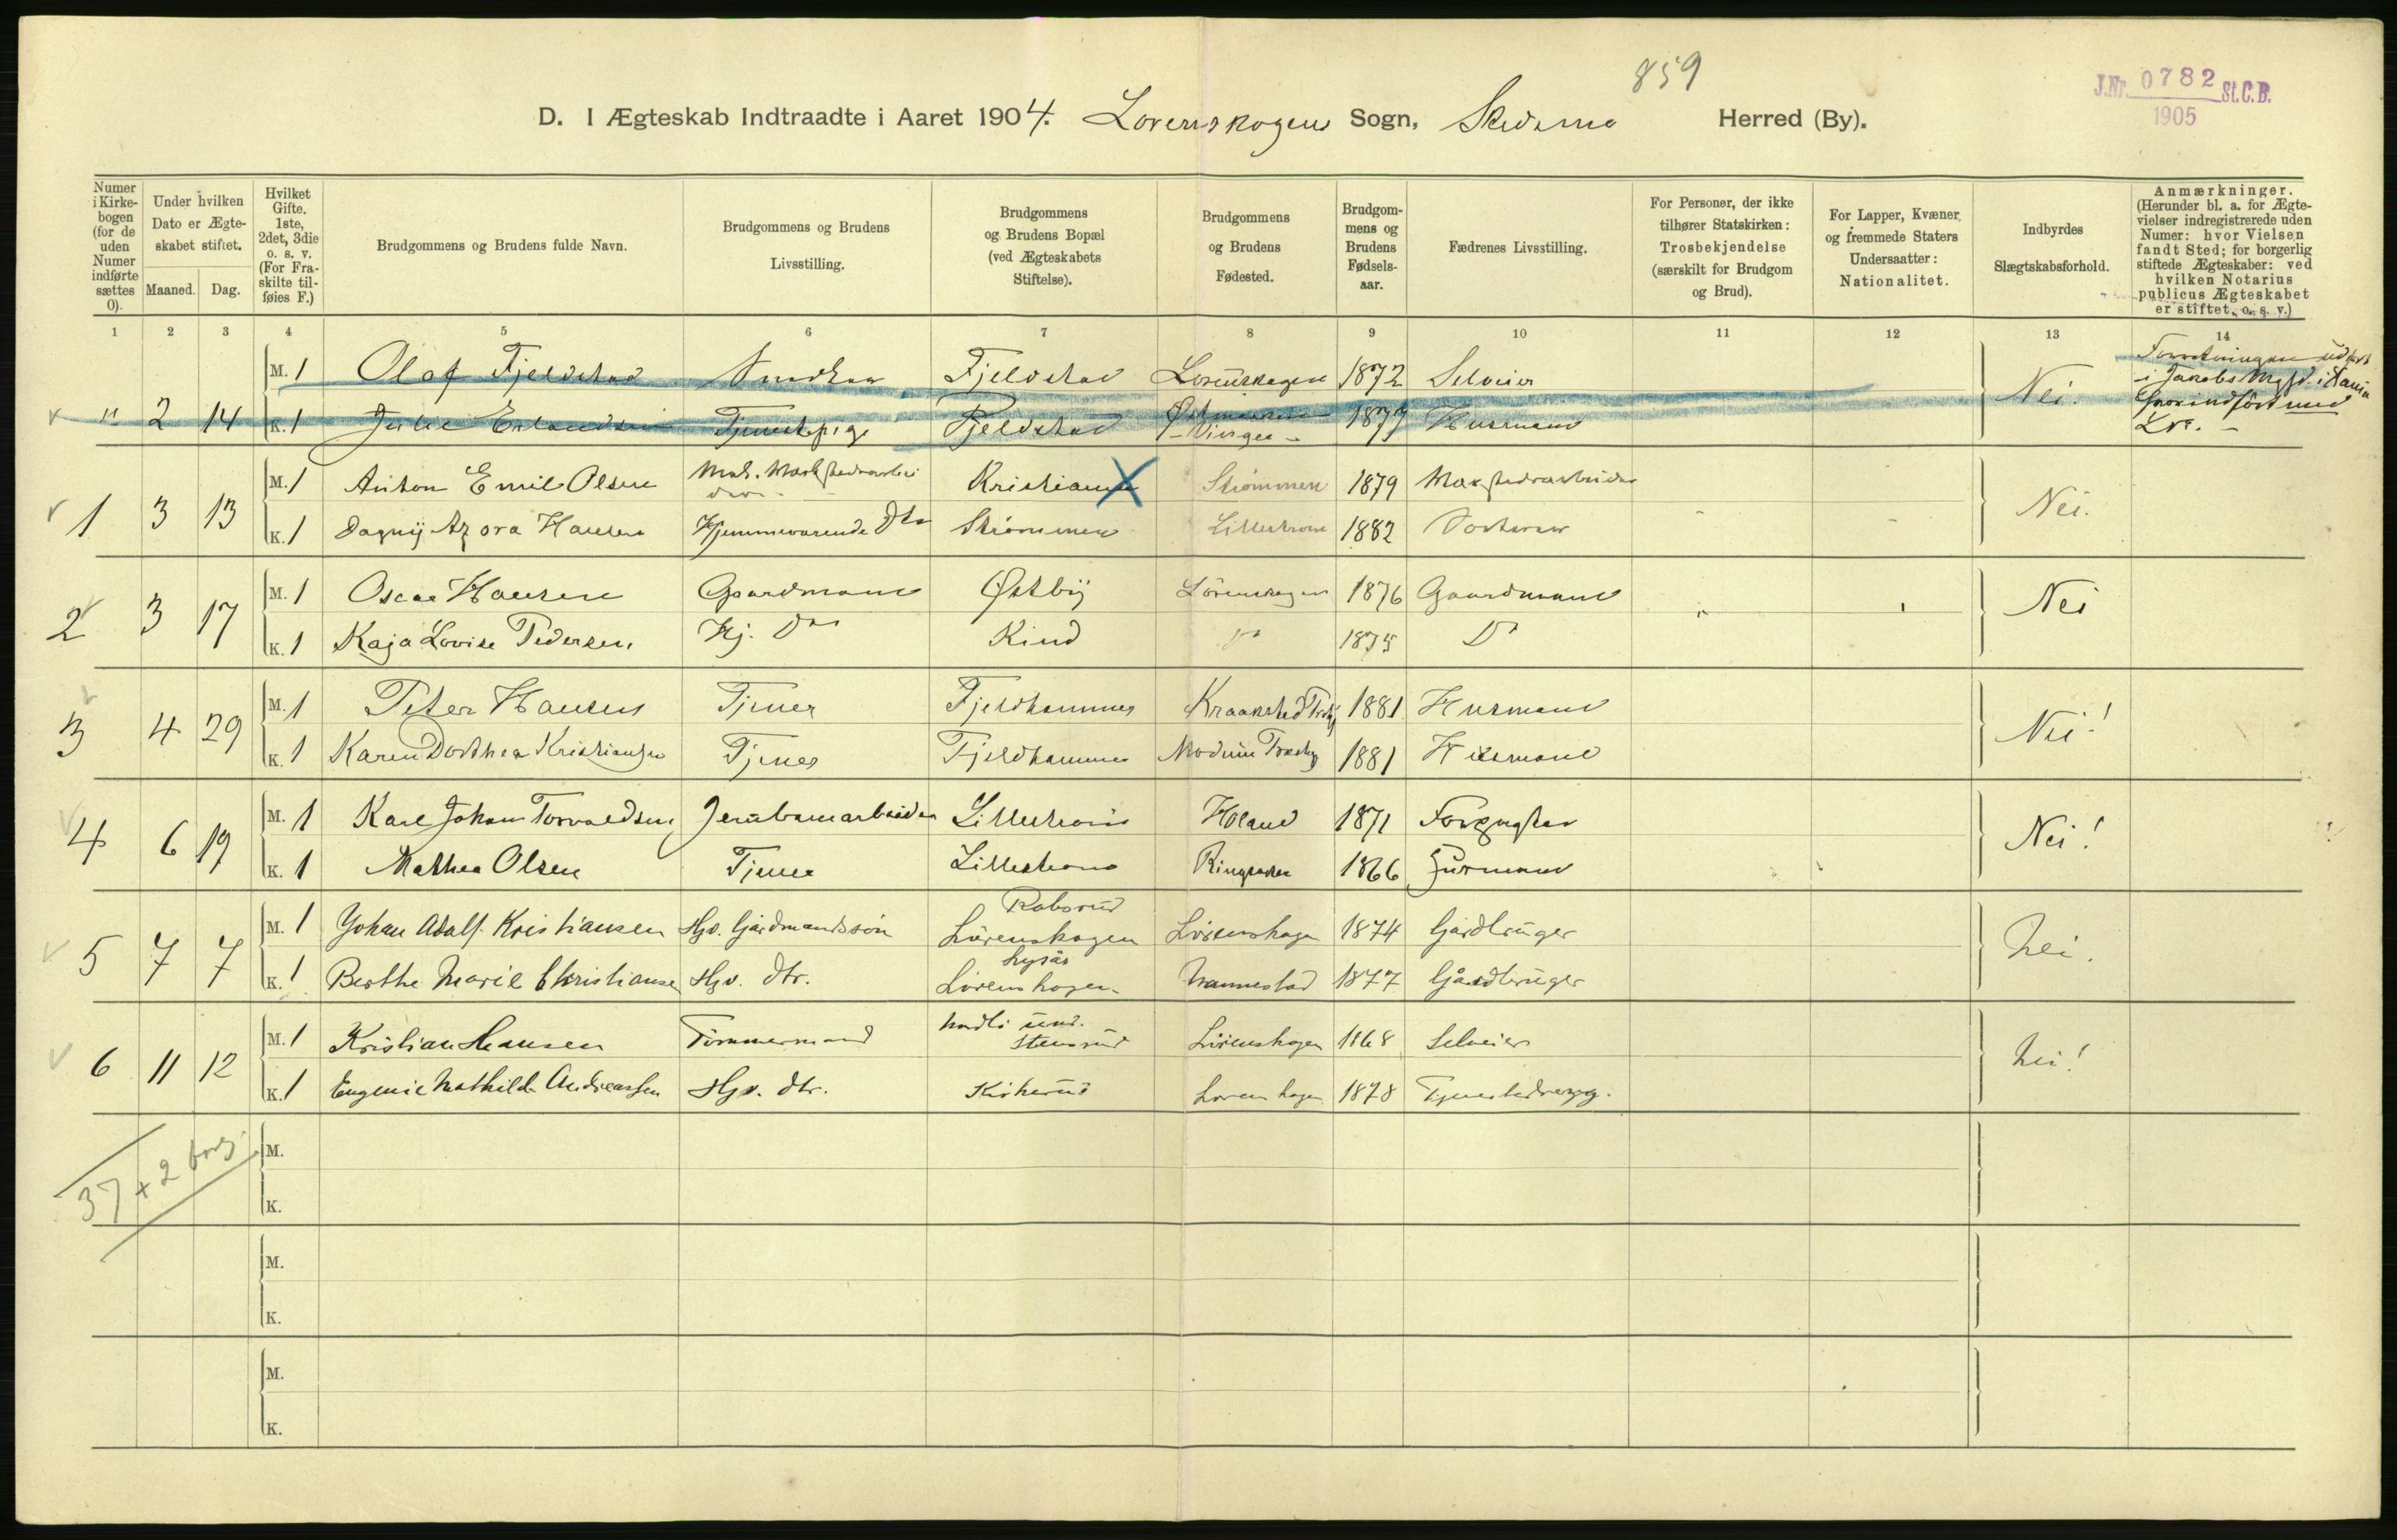 859
J.Nr. 0782 St.C.B.
1905
D. I Ægteskab Indtraadte i Aaret 1904. Lorenskogens Sogn, Skedsmo Herred (By).
Numer i Kirkebogen (for de uden Numer indførte sættes 0).
Under hvilken Dato er Ægteskabet stiftet.
Maaned. Dag.
Hvilket Gifte. 1ste, 2det, 3die o. s. v. (For Fraskilte tilføies F.)
Brudgommens og Brudens fulde Navn.
Brudgommens og Brudens Livsstilling.
Brudgommens og Brudens Bopæl (ved Ægteskabets Stiftelse).
Brudgommens og Brudens Fødested.
Brudgommens og Brudens Fødselsaar.
Fædrenes Livsstilling.
For Personer, der ikke tilhører Statskirken: Trosbekjendelse (særskilt for Brudgom og Brud).
For Lapper, Kvæner og fremmede Staters Undersaatter: Nationalitet.
Indbyrdes Slægtskabsforhold.
Anmærkninger. (Herunder bl. a. for Ægtevielser indregistrerede uden Numer: hvor Vielsen fandt Sted; for borgerlig stiftede Ægteskaber: ved hvilken Notarius publicus Ægteskabet er stiftet, o. s. v.)
1 2 3 4 5 6 7 8 9 10 11 12 13 14
M. 1 Olaf Fjeldstad Fjeldstad Lorenskogen 1872 Selveier
" 2 14 K. 1 Julie Erlandsen Tjenestepige Fjeldstad 1877 Husmand Nei.
M. 1 Anton Emil Olsen Kristiania Strømmen 1879
1 3 13 K. 1 Dagny Azora Hansen Hjemmeværende Dtr Strømmen Lillestrøm 1882 Nei.
M. 1 Oscar Hansen Gaardmand Østby Lörenskogen 1876 Gaardmand
2 3 17 K. 1 Kaja Lovise Pedersen Hj. Dtr Kind Do 1875 Do Nei
M. 1 Peter Hansen Tjener Fjeldhammer 1881 Husmand
3 4 29 K. 1 Karen Dorthea Kristiansen Tjener Fjeldhammer Modum 1881 Husmand Nei!
M. 1 Karl Johan Torvaldsen Jernbanearbeider Lillestrøm Høland 1871 Forpagter
4 6 19 K. 1 Mathea Olsen Tjener Lillestrøm Ringsaker 1866 Husmand Nei!
M. 1 Johan Adolf Kristiansen Hjv. Gårdmandssøn Robsrud Lörenskogen Lörenskogen 1874 Gårdbruger
5 7 7 K. 1 Berthe Marie Christiansen Hjv. dtr. Lysås Lörenskogen Nannestad 1877 Gårdbruger Nei.
M. 1 Kristian Hansen Tömmermand und. Stensrud Lörenskogen 1868 Selveier
6 11 12 K. 1 Eugenie Mathilde Andreassen Hjv. dtr. Kirkerud Lörenskogen 1878 Nei!
37 + 2 borg.
M.
K.
M.
K.
M.
K.